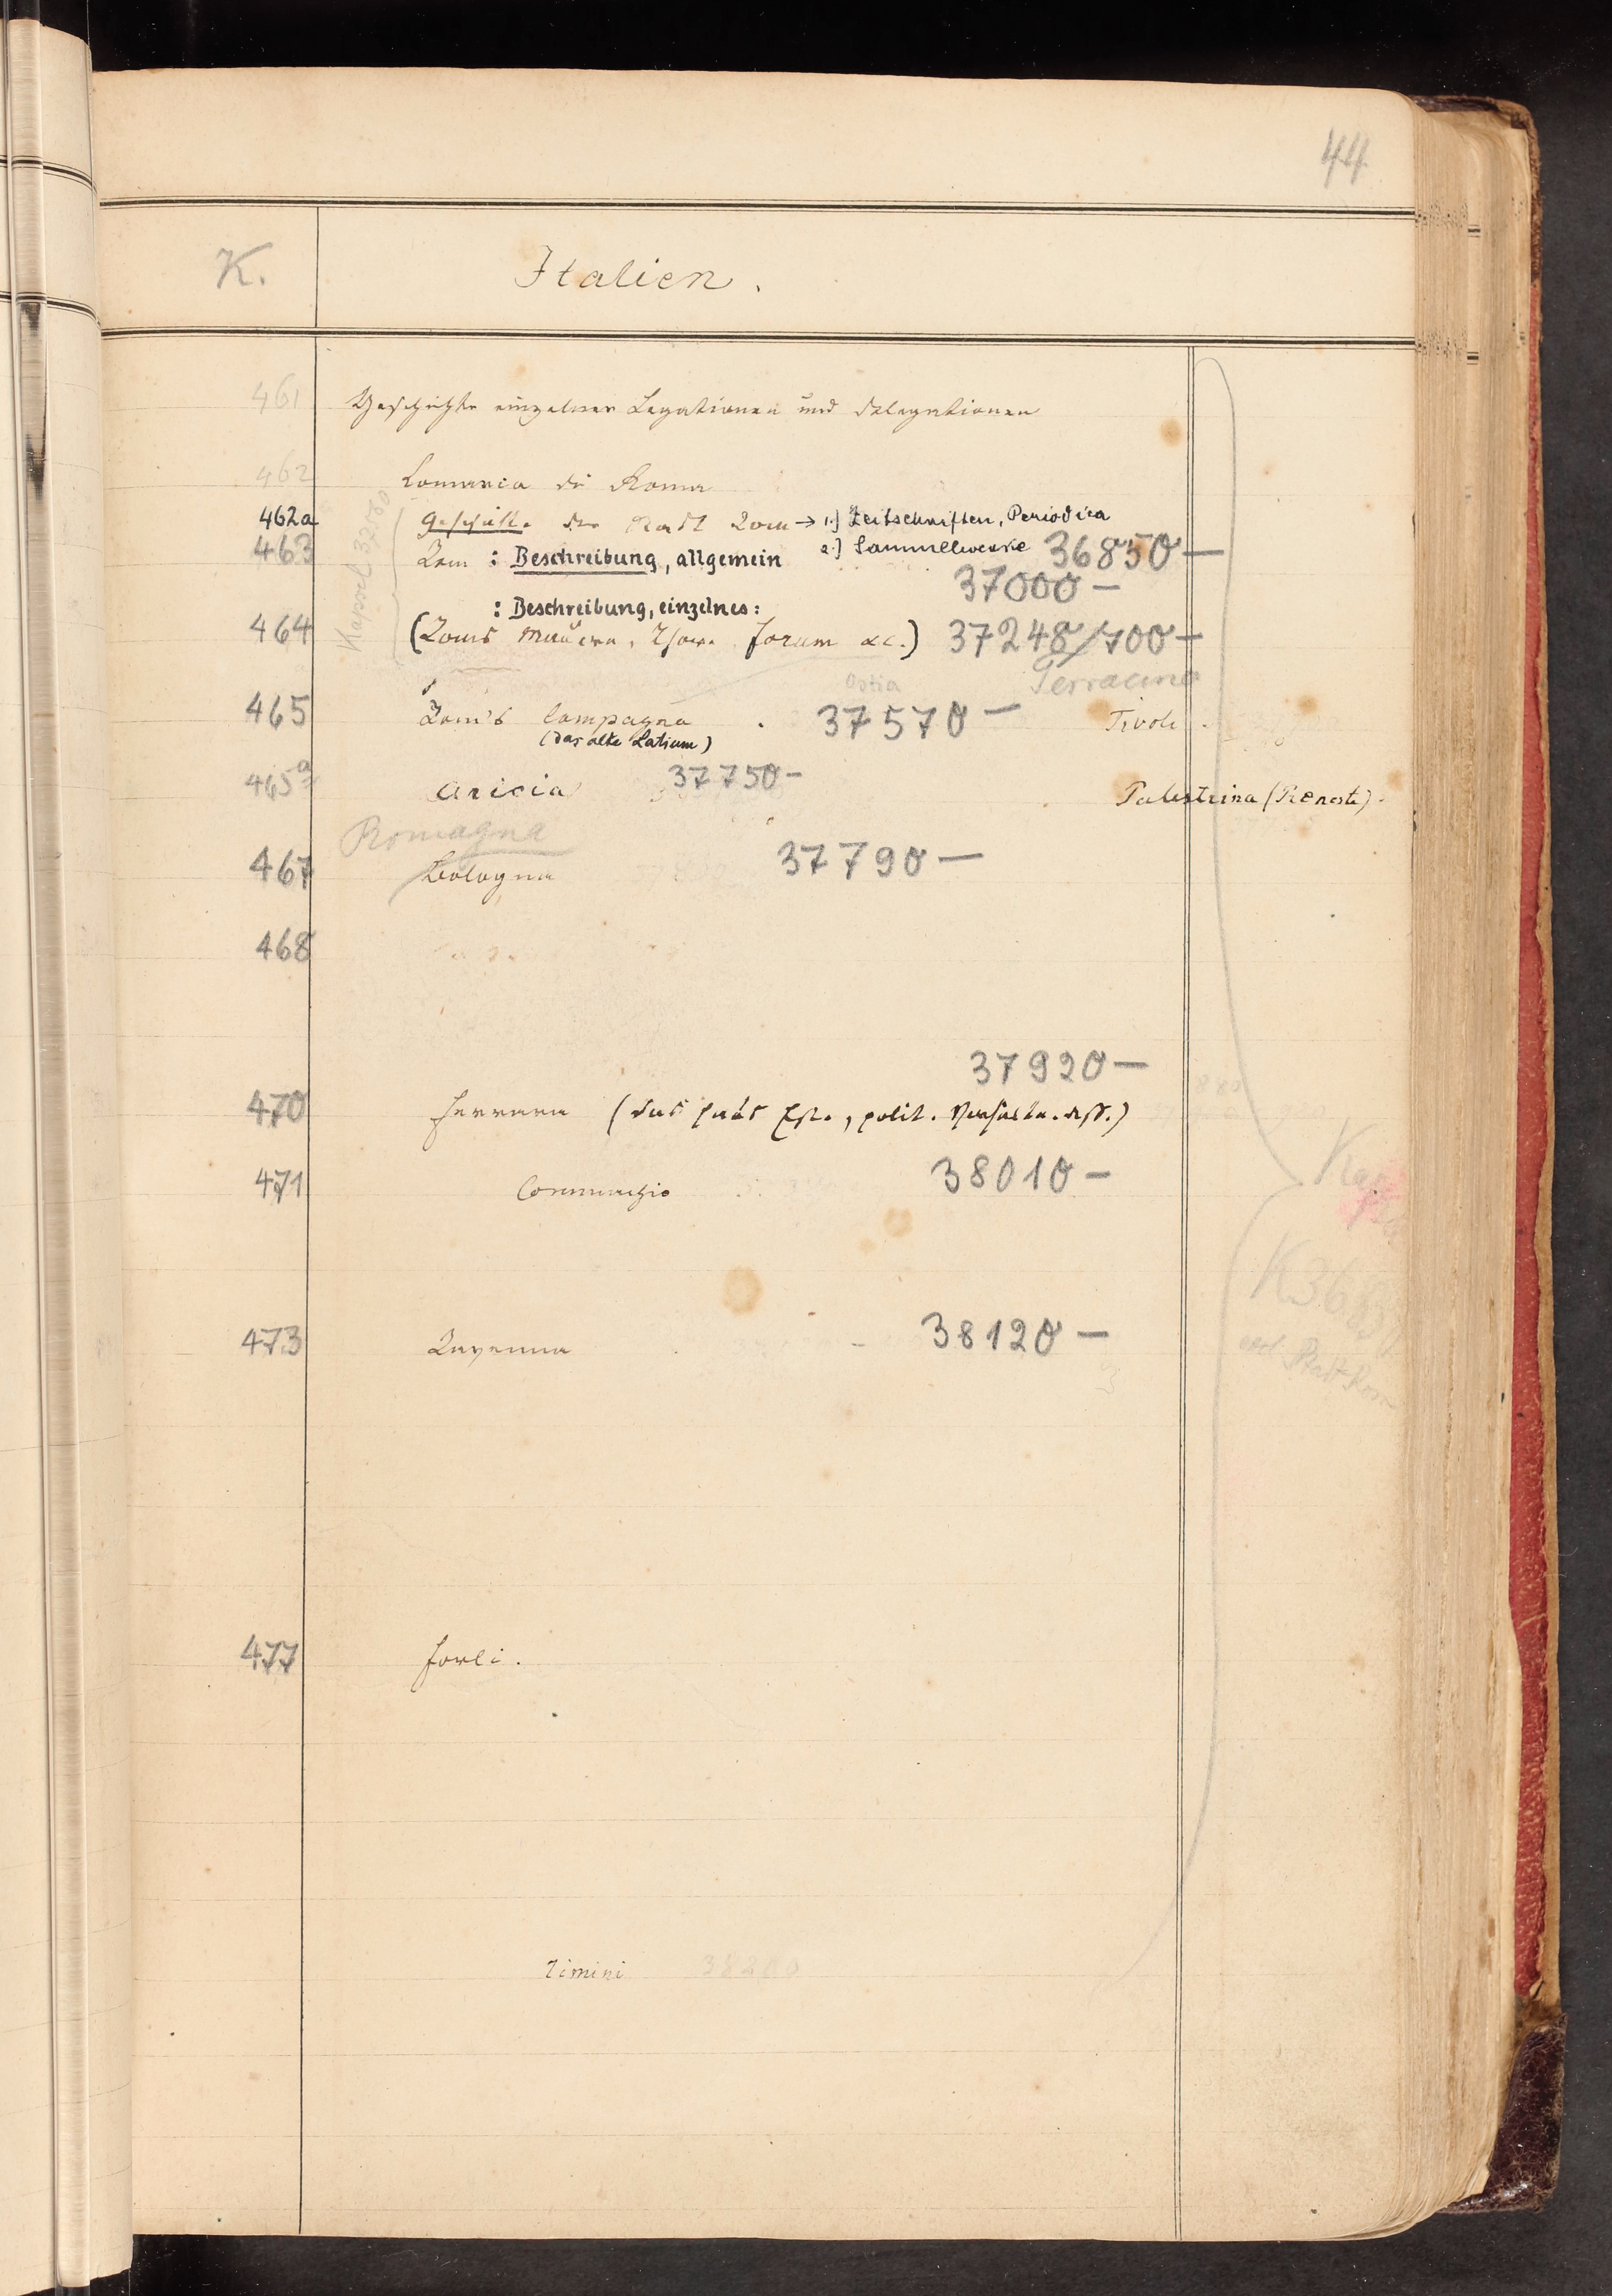 44
K. Italien.
461 Geschichte einzelner Legationen und Delegationen
462 Comarca di Roma
462a Geschichte der Stadt Rom → 1.) Zeitschriften, Periodica
2.) Sammelwerke 36850 —
463 Rom : Beschreibung, allgemein
37000 —
: Beschreibung, einzelnes:
464 (Roms Mauern, Thore, Forum etc.) 37248/700 —
Kapsel
Ostia Terracina
465 Rom's Campagna . 37570 — Tivoli .
(das alte Latium)
465a Aricia 37750 — Palestrina (Preneste) .
Romagna
467 Bologna 37790 —
468
37920 —
470 Ferrara (das Haus Este, polit. dess.)
471 Commachio 38010 —
473 Ravenna 38120 —
477 Forli .
Rimini 38200
K 368
Stadt Rom